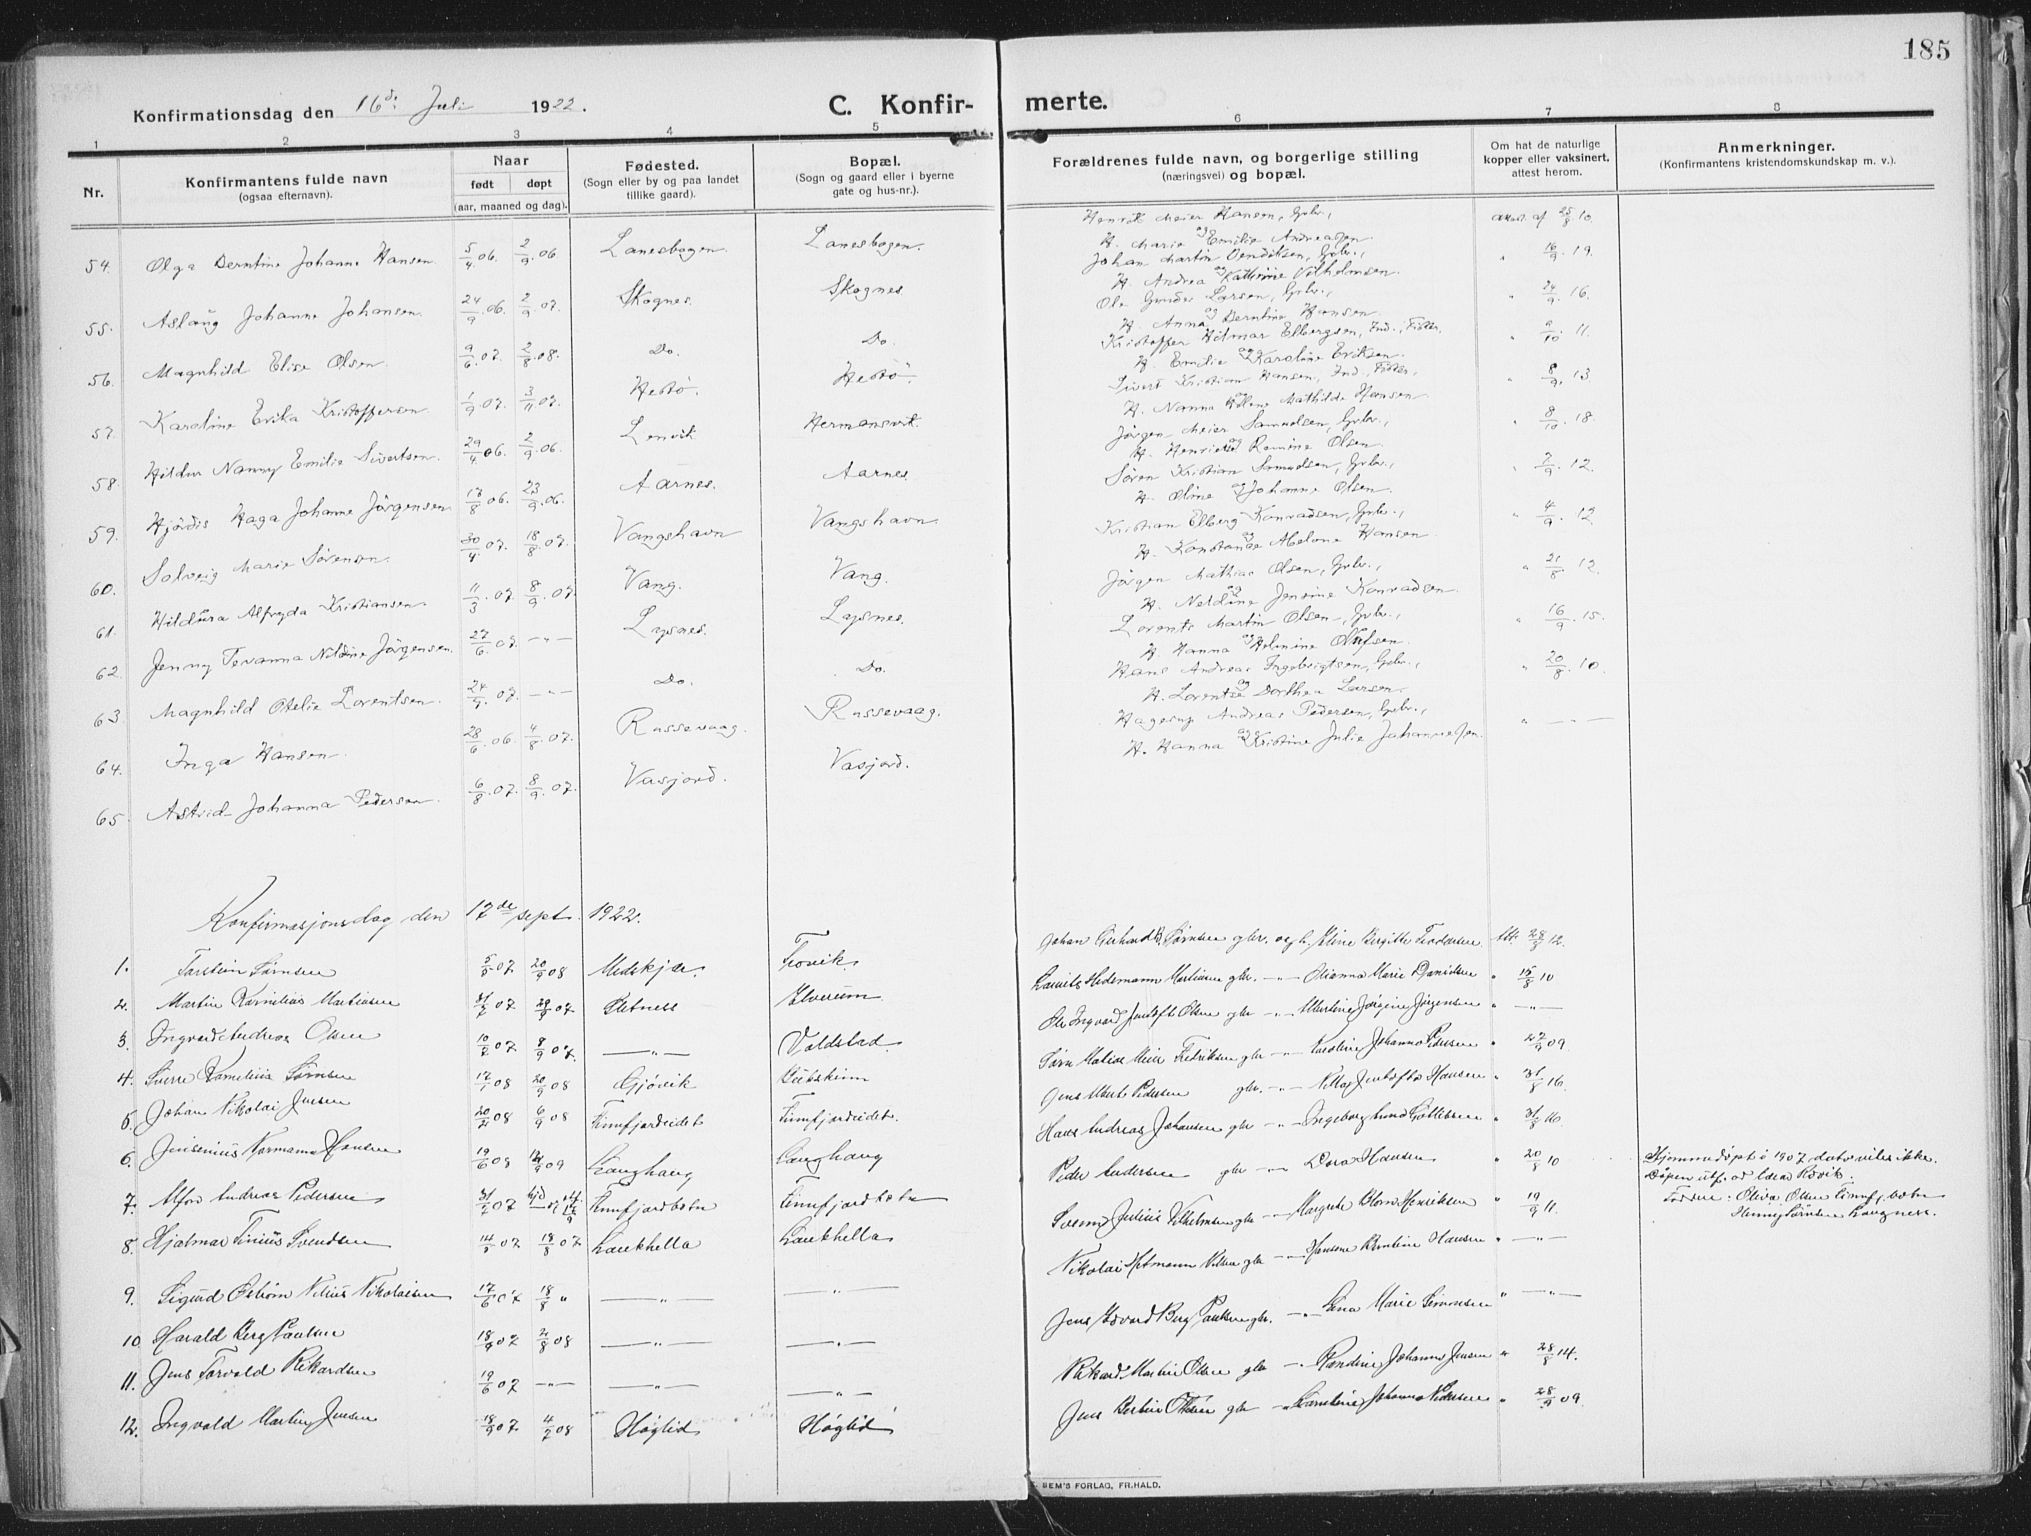 185
Konfirmationsdag den 16de Juli 1922. C. Konfirmerte.
1 2 3 4 5 6 7 8
Nr. Konfirmantens fulde navn (ogsaa efternavn). Naar født døpt (aar, maaned og dag). Fødested. (Sogn eller by og paa landet tillike gaard). Bopæl. (Sogn og gaard eller i byerne gate og hus-nr.). Forældrenes fulde navn, og borgerlige stilling (næringsvei) og bopæl. Om hat de naturlige kopper eller vaksinert, attest herom. Anmerkninger. (Konfirmantens kristendomskundskap m. v.).
54. Olga Berntine Johanne Hansen 5/4 06. 2/9 06 Lanesbogen Lanesbogen. Henrik Meier Hansen, Gbr., H. Marie og Emilie Andreassen attest af 25/8 10.
55. Aslaug Johanne Johansen 24/9 06. 2/9 07. Skognes. Skognes Johan Martin Bendiksen, Gbr., H. Andrea og Kathrine Vilhelmsen. " 16/9 19.
56. Magnhild Elise Olsen. 9/6 07. 2/8 08. Do. Do. Ole Larsen, Gbr., H. Anna og Berntine Hansen " 24/9 16.
57. Karoline Erika Kristoffersen 1/9 07. 3/11 07. Hestö. Hestö. Kristoffer Hilmar Elbergsen, Ind., Fisker, H. Emilie og Karoline Eriksen. " 9/10 11.
58. Hildur Nanny Emilie Sivertsen. 29/4 06. 2/9 06. Lenvik Hermansvik. Sivert Kristian Hansen, Ind., Fisker, H. Nanna og Helene Mathilde Hansen " 8/9 13
59. Hjördis Haga Johanne Jörgensen 17/8 06. 23/9 06. Aarnes. Aarnes. Jörgen Meier Samuelsen, Gbr., H. Henrikke og Romine Olsen. " 8/10 18.
60. Solveig Marie Sörensen. 30/4 07. 18/8 07. Vangshavn Vangshavn Sören Kristian Samuelsen, Gbr., H. Oline og Johanne Olsen. " 7/9 12.
61. Hildura Alfryda Kristiansen. 11/3 07. 8/9 07. Vang. Vang. Kristian Elberg Konradsen, Gbr., H. Konstanse og Abelone Hansen " 4/9 12.
62. Jenny Tevanna Neldine Jörgensen. 27/6 07. — " — Lysnes. Lysnes. Jörgen Mathias Olsen, Gbr., H. Neldine og Jensine Konradsen. " 21/8 12.
63. Magnhild Otelie Lorentsen. 24/9 07. — " — Do. Do. Lorents Martin Olsen, Gbr., H. Hanna og Helmine Olufsen. " 16/9 15.
64. Inga Hansen. 28/6 06. 4/8 07. Rossevaag. Rossevaag. Hans Andreas Ingebrigtsen, Gbr., H. Lorentse og Dorthea Larsen. " 20/8 10.
65. Astrid Johanna Pedersen. 6/8 07. 8/9 07. Vasjord. Vasjord. Hagerup Andreas Pedersen, Gbr., H. Hanna og Kristine Julie Johannessen. " — " —
Konfirmasjonsdag den 17de sept. 1922.
1. Torstein Sørnsen 5/9 07 20/9 08 Medskjær Trovik. Johan Gerhard Sørnsen gbr. og h. Petine Birgitte Teodorsen Att. 28/8 12.
2. Martin Kornelius Martinsen 31/7 07 29/9 07 Fletness Elverum Laurits Hedemann Martinsen gbr. — " — Olianna Marie Danielsen " 15/8 10
3. Ingvard Andreas Olsen 10/2 07 8/9 07. — " — Voldstad. Ole Ingvard Jentoft Olsen gbr — " — Martine Jørgine Jørgensen " — " —
4. Sverre Kornelius Sørnsen 17/1 08 20/9 08 Gjøvik Sørn Matias Meier Fredriksen gbr — " — Karoline Johanna Pedersen " 27/9 09.
5. Johan Nikolai Jensen 20/2 08 6/9 08 Finnfjordeidet Finnfjordeidet. Jens Albert Pedersen gbr. — " — Nilla Jentofta Hansen " 31/8 16.
6. Jensenius Normann Hansen 19/6 08 12/9 09 Langhaug Langhaug Hans Andreas Johansen gbr — " — Ingeborg " 31/8 16.
7. Alfon Andreas Pedersen 31/7 07 hjd Finnfjordbotn Finnfjordbotn Peder Andersen gbr — " — Dora Hansen " 20/8 10 Hjemmedøpt i 1907 dato vites ikke. Dåpen utf. av
Faddere: Oliva Olsen Finnfj. botn Henrig Sørnsen Langness.
8. Hjalmar Tinius Svendsen 14/9 07 18/8 07 Laukhella Laukhella Svenn Julius Vilhelmsen gbr — " — Margrete Henriksen " 19/9 11.
9. Sigurd Østrøm Nilius Nikolaisen 17/6 07 18/8 " — " — — " — Nikolai Hetmann Nilsen gbr — " — Hansine Berntine Hansen " — " —
10. Harald Berg Paulsen 18/9 07 2/8 08 — " — — " — Jens Edvard Berg Paulsen gbr. — " — Lina Marie Simonsen " — " —
11. Jens Torvald Rikardsen 19/6 07 — " — — " — — " — Rikard Martin Olsen gbr — " — Johanna Jensen " 28/8 14.
12. Ingvald Martin Jensen 18/9 07 4/7 08 Høglid Høglid Jens Olsen gbr — " — Johanna Pedersen " 28/9 09.
BEM'S FORLAG, FR.HALD.